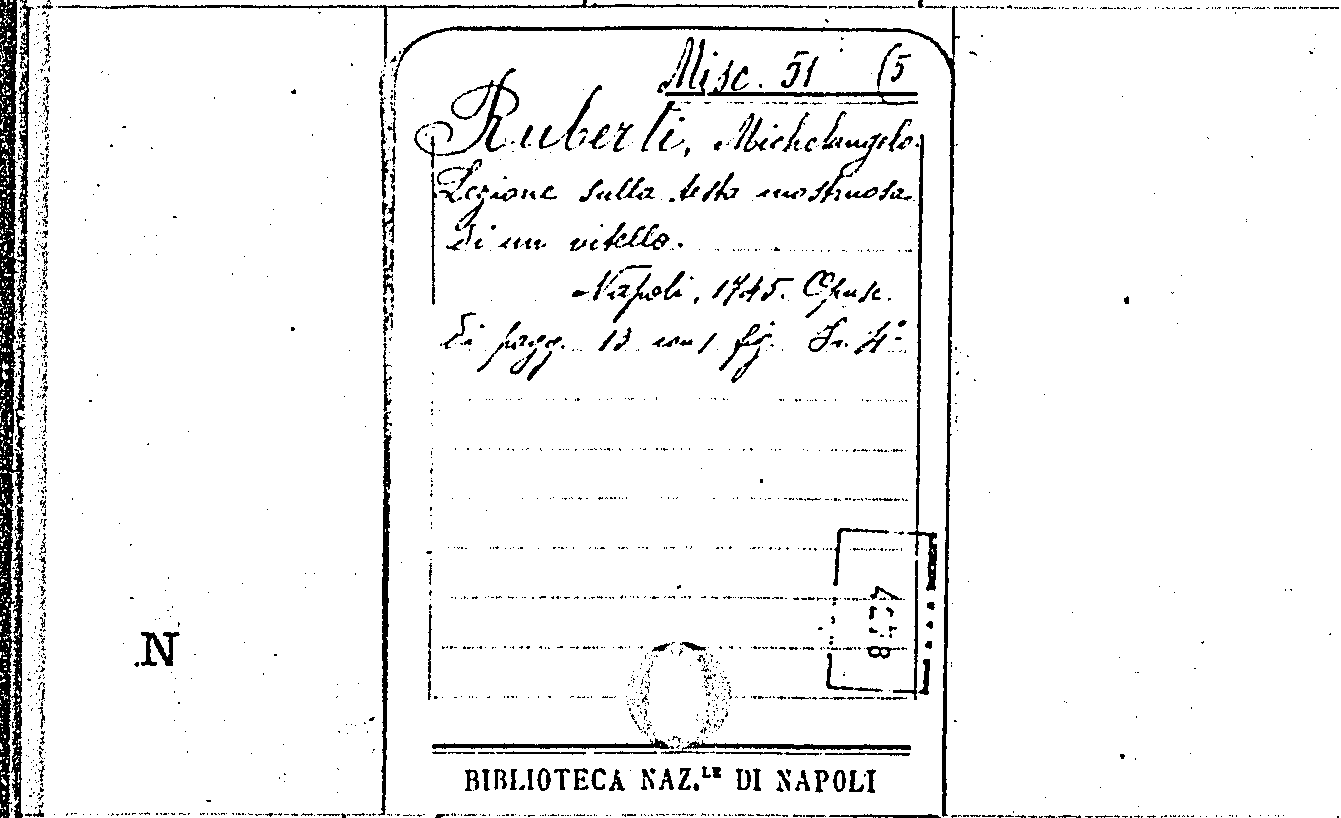 Misc. 51 (5
Ruberti, Michelangelo.
Lezione sulla testa mostruosa
di un vitello.
Napoli, 1745. Opusc.
di pagg. 13 con 1 fig. In 4°
N
BIBLIOTECA NAZ.LE DI NAPOLI